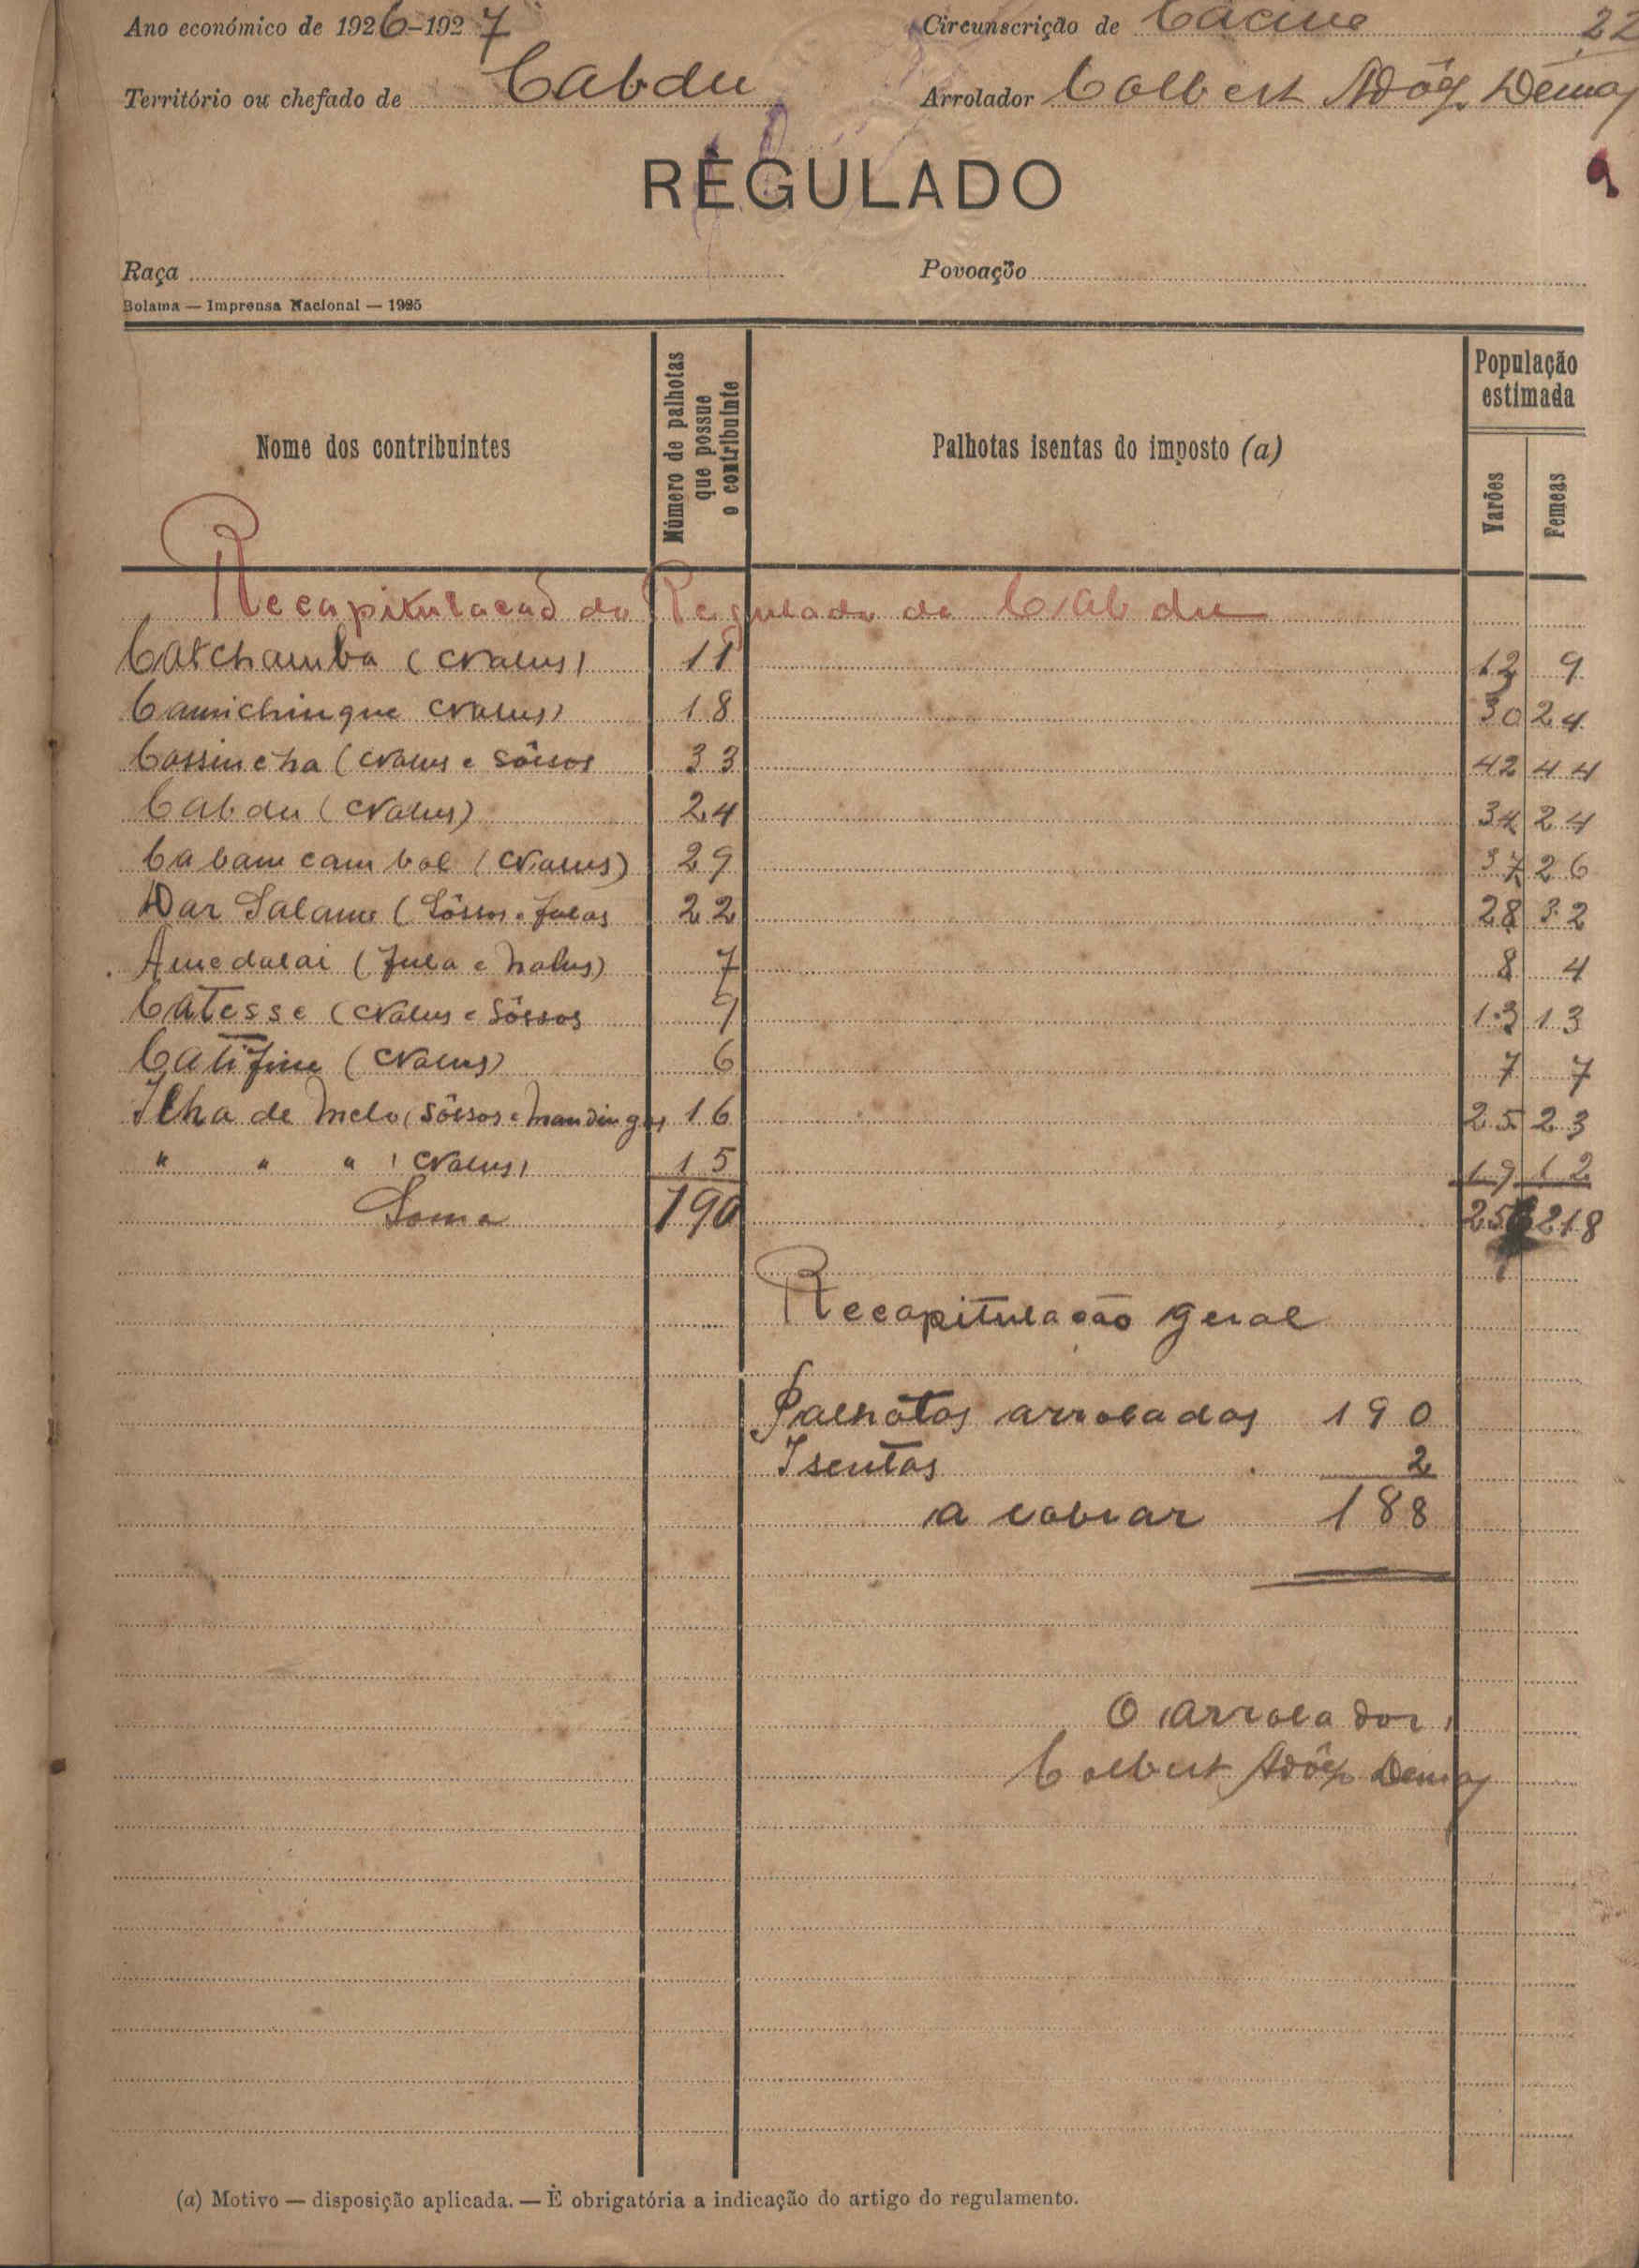 Ano económico de 1926-1927 Circunscrição de Cacine 22
Território ou chefado de Cabdu Arrolador Colbert Adôlf Demay
REGULADO
Raça Povoação
Bolama — Imprensa Nacional — 1925
Nome dos contribuintes Número de palhotas que possue o contribuinte Palhotas isentas do imposto (a) População estimada Varões Femeas
Recapitulacaõ do Regulado de Cabdu
Catchamba (Nalus) 11 12 9
Camichingue Nalus) 18 30 24
Cassincha (Nalus e Sôssos 33 42 44
Cabdu (Nalus) 24 34 24
Cabam cambol (Nalus) 29 37 26
Dar Salame (Sôssos e Fulas 22 28 32
Amedalai (Fula e Nalus) 7 8 4
Catesse (Nalus e Sôssos 9 13 13
Catifine (Nalus) 6 7 7
Ilha de Melo (Sôssos e Mandingas 16 25 23
" " " (Nalus) 15 19 12
Soma 190 218
Recapitulação geral
Palhotas arroladas 190
Isentas 2
a cobrar 188
O arrolador,
Colbert Adôlf Demay
(a) Motivo — disposição aplicada. — É obrigatória a indicação do artigo do regulamento.